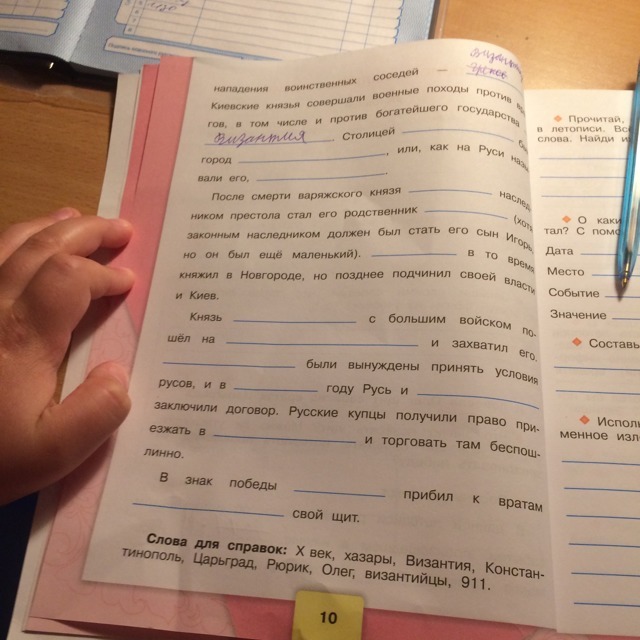 нападения воинственных соседей —
Киевские князья совершали военные походы против
гов, в том числе и против богатейшего государства
Византия. Столицей
город , или, как на Руси назы
вали его, .
После смерти варяжского князя наслед
ником престола стал его родственник (хоть
законным наследником должен был стать его сын Игорь,
но он был ещё маленький). в то время
княжил в Новгороде, но позднее подчинил своей власти
и Киев.
Князь с большим войском по-
шёл на и захватил его.
были вынуждены принять условия
русов, и в году Русь и
заключили договор. Русские купцы получили право при-
езжать в и торговать там беспош-
линно.
В знак победы прибил к вратам
свой щит.
Слова для справок: X век, хазары, Византия, Констан-
тинополь, Царьград, Рюрик, Олег, византийцы, 911.
10
Прочитай,
в летописи.
слова. Найди
О
тал? С
Дата
Место
Событие
Значение
Составь
менное